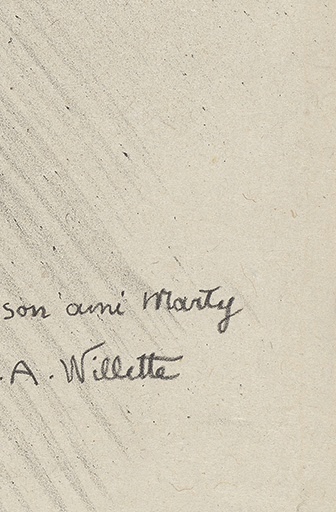 son ami Marty
. A. Willette